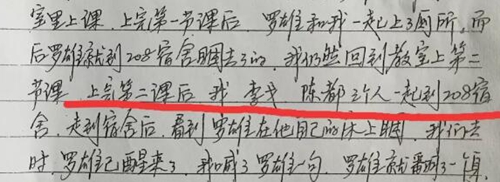 室里上课. 上完第一节课后 罗雄和我一起上了厕所, 而
后罗雄就到208宿舍睡去了的. 我们然回到教室上第二
节课 上完第二课后 我 李戈 陈都 三个人一起到208宿
舍. 走到宿舍后, 看到罗雄在他自己的床上睡, 我们去
时, 罗雄已醒来了 我喊了罗雄一句, 罗雄就翻了一